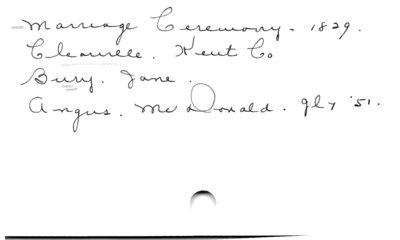 Marriage Ceremony - 1829.
Clearville. Kent Co
Bury. Jane.
Angus. McDonald. gly '51.